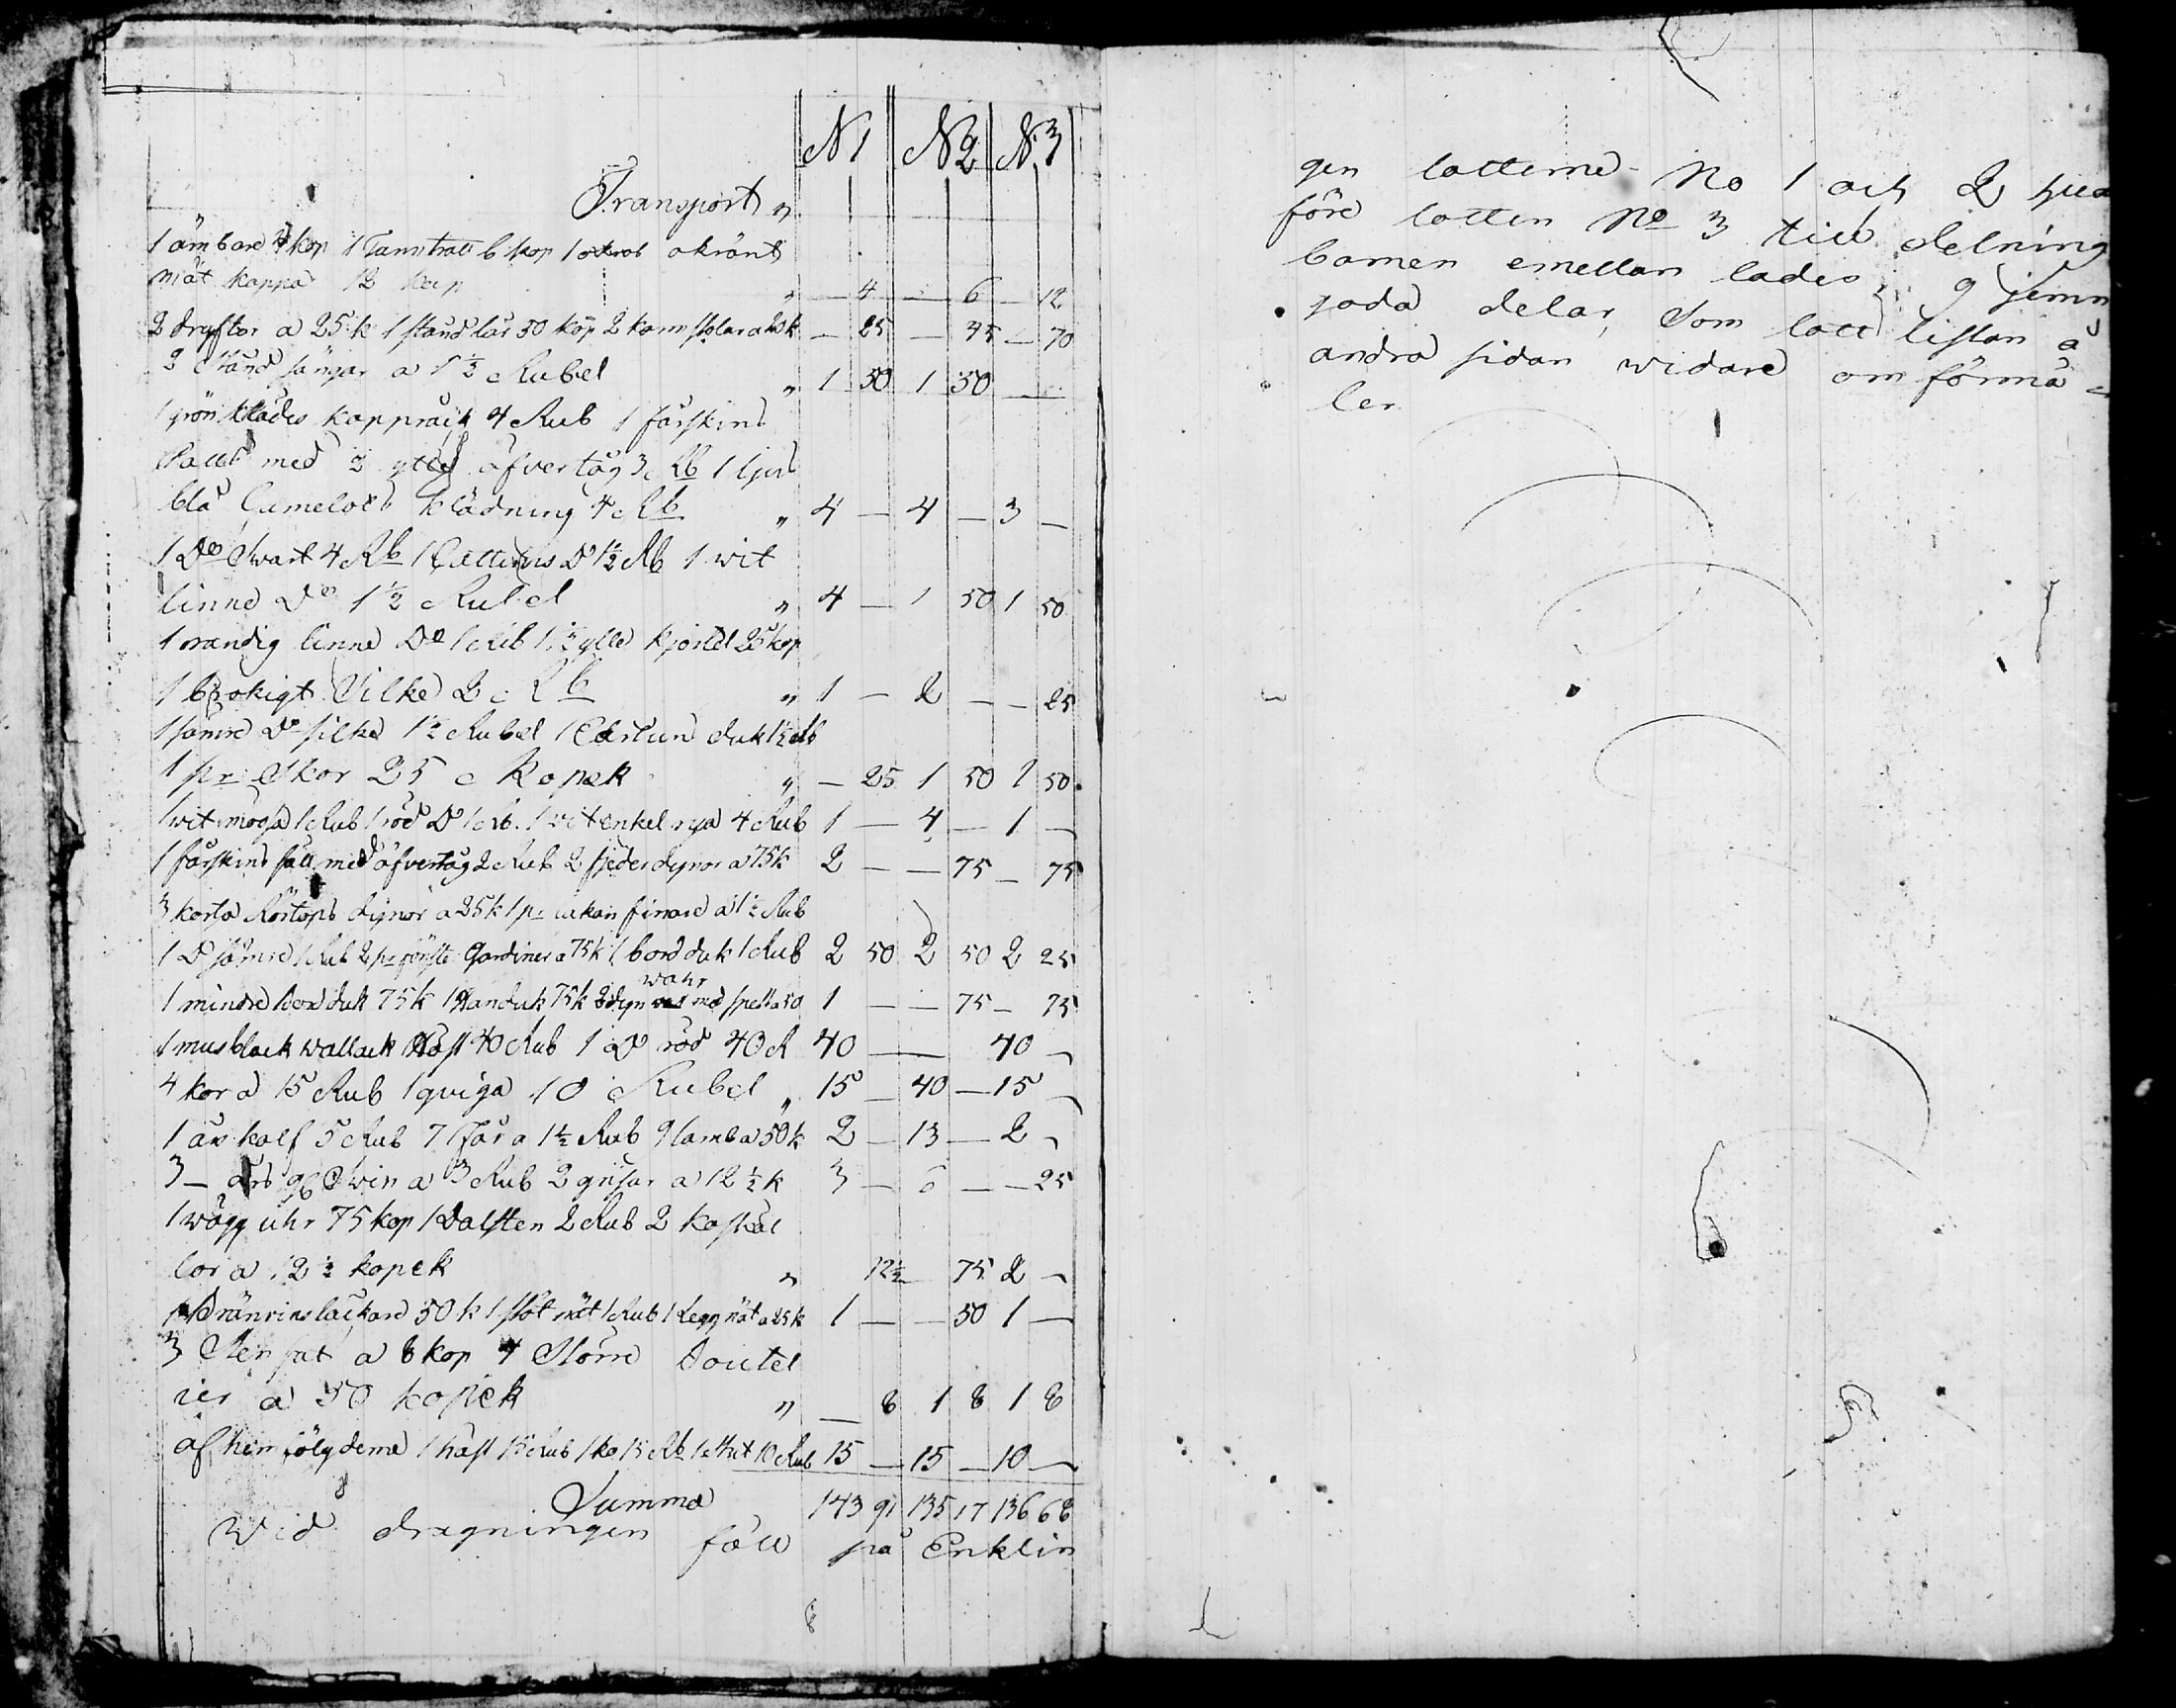 N 1 N 2 N 3
Transport "
1 ämbare 4 kop 1 Tanntratt 6 kop 1 okrönt
mät kappa 12 kop " — 4 — 6 — 12
2 dryftor a 25 k 1 stand kar 50 kop 2 karm stolar a 20 k — 25 — 45 — 70
2 Stånd sängar a 1½ Rubel " 1 50 1 50 —
1 grön klädes kappråck 4 Rub 1 fårskins
med ½ ylle öfvertåg 3 Rb 1 ljus
blå Camelots klädning 4 Rb " 4 — 4 — 3 —
1 Do Swart 4 Rb 1 Cattuns Do 1½ Rb 1 wit
linne Do 1½ Rubel " 4 — 1 50 1 50
1 randig linne Do 1 Rub 1 ½ ylle kjortel 25 kop
1 brokigt Silke 2 Rb " 1 — 2 — — 25
1 sämre Do silke 1½ Rubel 1 Cartun duk 1½ Rb
1 pr Skor 25 Kopek " — 25 1 50 1 50
1 wit mössa 1 Rub 1 röd Do 1 Rb. 1 wit enkel rya 4 Rub 1 — 4 — 1 —
1 fårskins fäll med öfvertåg 2 Rub 2 fjeder dynor a 75 k 2 — — 75 — 75
3 korta dynor a 25 k 1 pr lakan finare a 1½ Rub
1 Do sämre 1 Rub 2 pr fönster Gardiner a 75 k 1 bord duk 1 Rub 2 50 2 50 2 25
wahr
1 mindre bord duk 75 k 1 Handuk 75 k 2 dyn med spets a 50 1 — — 75 — 75
1 musblack wallack Häst 40 Rub 1 Do röd 40 R 40 — — 40 —
4 kor a 15 Rub 1 qviga 10 Rubel " 15 — 40 — 15 —
1 års kalf 5 Rub 7 Får a 1½ Rub 9 lamb a 50 k 2 — 13 — 2 —
3 — Swin a 3 Rub 2 grisar a 12½ k 3 — 6 — — 25
1 wägg uhr 75 kop 1 Dalsten 2 Rub 2 koskäl
lor a 12½ kopek " 12½ — 75 2 —
1 50 k 1 nöt 1 Rub 1 nät a 25 k 1 — — 50 1 —
3 Sten fat a 8 kop 4 Större boutel
ier a 50 kopek " — 8 1 8 1 8
af hemföljderna 1 häst 15 Rub 1 ko 15 Rb 1 Stut 10 Rub 15 — 15 — 10 —
Summa 143 91 135 17 136 68
Wid dragningen föll på Enklin
gen lotterne No 1 och 2
före lotten No 3 till delning
barnen emellan lades, 9 Jemn
goda delar, Som lott listan å
andra sidan widare om förmä =
ler